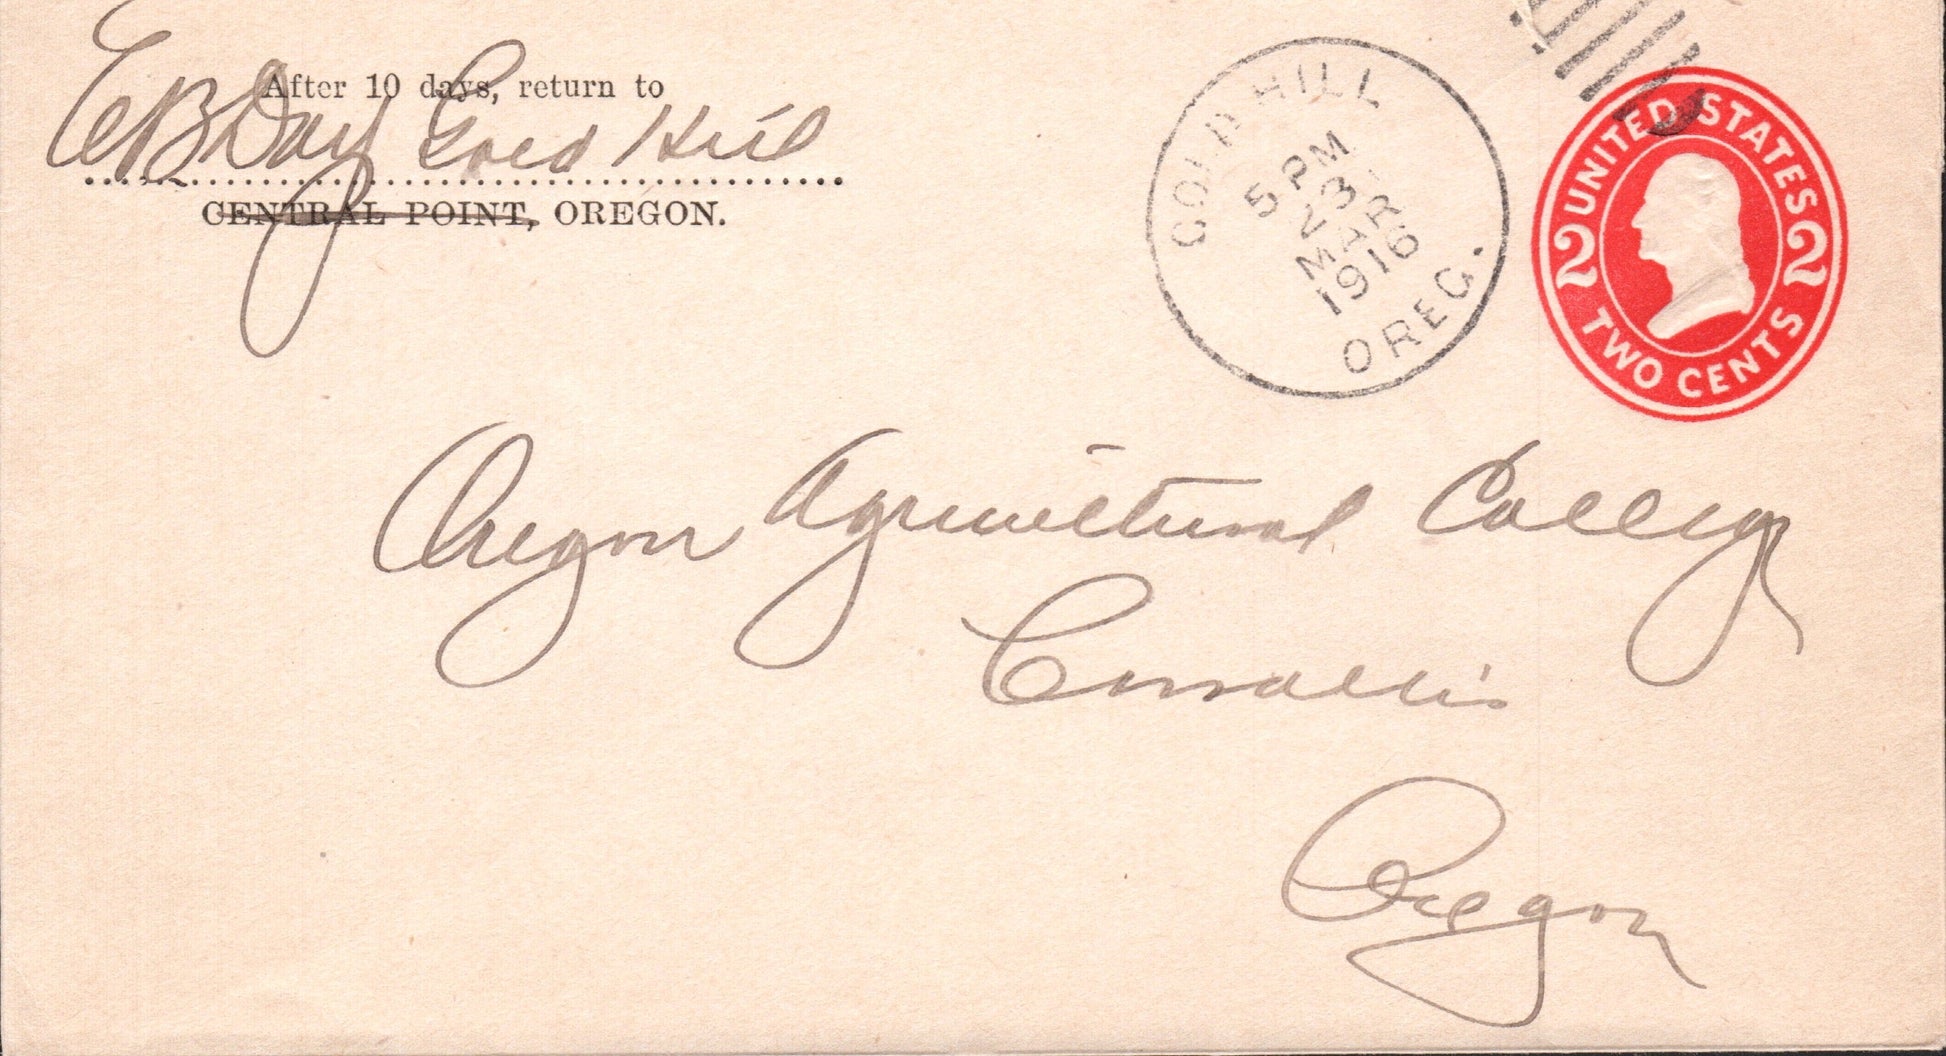 After 10 days, return to
E B Day Gold Hill
CENTRAL POINT, OREGON.
GOLD HILL
5 PM
23
MAR
1916
OREG.
UNITED STATES
2 2
TWO CENTS
Oregon Agricultural College
Corvallis
Oregon